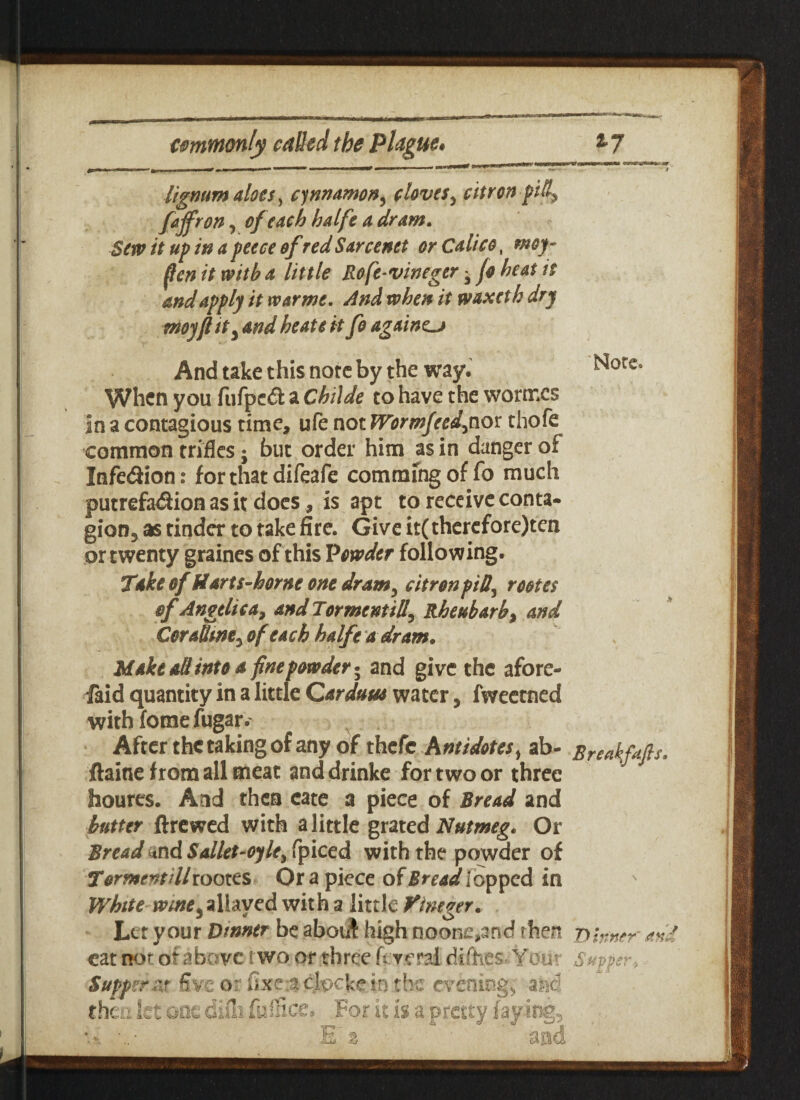 commonly called the Plague. 27
lignum aloes, cynnamon, cloves, citron pill,
saffron, of each halfe a dram.
Sew it up in a peece of red Sarcenet or Calico, moy-
sten it with a little Rose-vineger; so heat it
and apply it warme. And when it waxeth dry
moyst it, and heate it so againe
And take this note by the way.
Note.
When you suspect a Childe to have the wormes
in a contagious time, use not Wormseed, nor those
common trifles; but order him as in danger of
Infection: for that disease comming of so much
putrefaction as it does, is apt to receive conta-
gion, as tinder to take fire. Give it (therefore) ten
or twenty graines of this Powder following.
Take of Harts-horne one dram, citron pill, rootes
of Angelica, and Tormentill, Rheubarb, and
Coralline, of each halfe a dram.
Make all into a fine powder; and give the afore-
said quantity in a little Carduus water, sweetned
with some sugar.
After the taking of any of these Antidotes, ab-
Breakfasts.
staine from all meat and drinke for two or three
houres. And then eate a piece of Bread and
butter strewed with a little grated Nutmeg. Or
Bread and Sallet-oyle, spiced with the powder of
Tormentill rootes Or a piece of Bread sopped in
White-wine, allayed with a little Vineger.
Let your Dinner be about high noone, and then
Dinner and
eat not of above two or three severall dishes. Your
Supper.
Supper at five or sixe a clocke in the evening, and
then let one dish suffice. For it is a pretty saying,
E 2 and